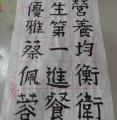 營養均衡衛
生第一進餐
優雅蔡佩蓉